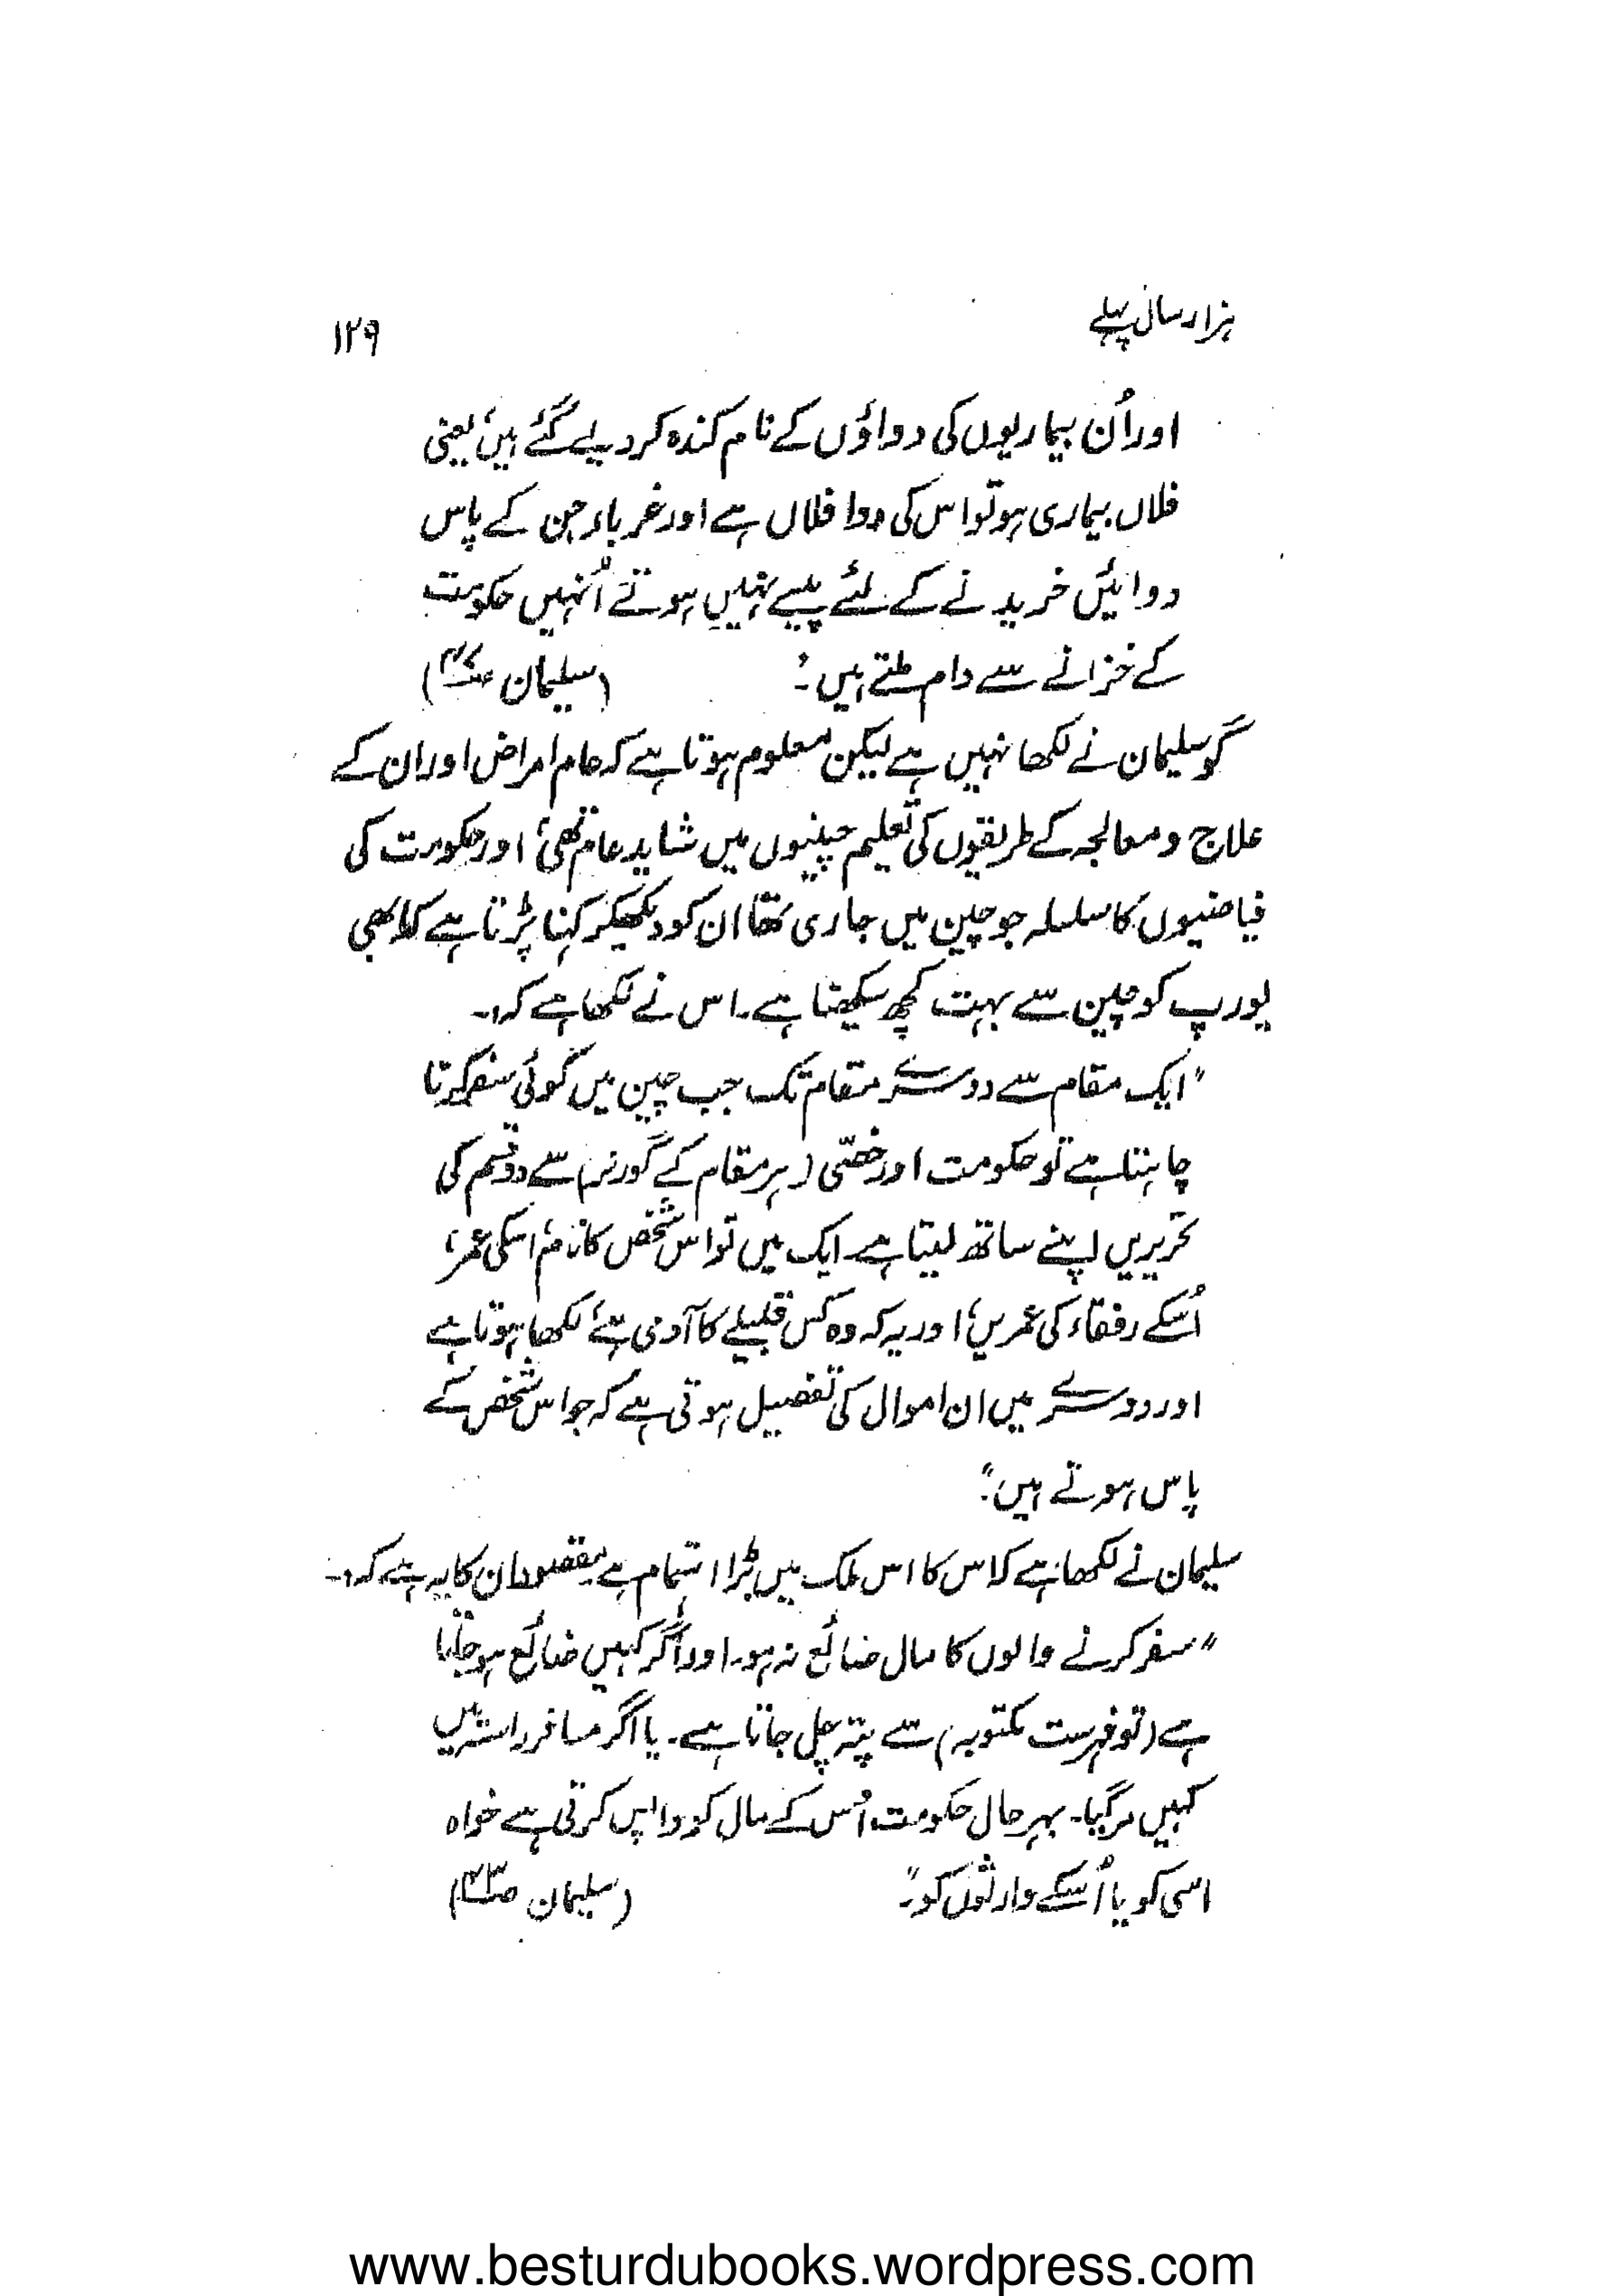 ہزار سال پہلے
۱۲۹
اور اُن بیماریوں کی دواؤں کے نام کندہ کر دیے گئے ہیں، یعنی
فلاں بیماری ہو تو اس کی دوا فلاں ہے اور غرباء جن کے پاس
دوائیں خریدنے کے لئے پیسے نہیں ہوتے اُنہیں حکومت
کے خزانے سے دام ملتے ہیں؛
(سلیمان ص۴۷)
گو سلیمان نے لکھا نہیں ہے لیکن معلوم ہوتا ہے کہ عام امراض اور ان کے
علاج و معالجہ کے طریقوں کی تعلیم چینیوں میں شاید عام تھی، اور حکومت کی
فیاضیوں کا سلسلہ جو چین میں جاری تھا ان کو دیکھکر کہنا پڑتا ہے کہ ابھی
یورپ کو چین سے بہت کچھ سیکھنا ہے۔ اس نے لکھا ہے کہ:۔
"ایک مقام سے دوسرے مقام تک جب چین میں کوئی سفر کرنا
چاہتا ہے تو حکومت اور خصّی (ہر مقام کے گورنر) سے دو قسم کی
تحریریں اپنے ساتھ لیتا ہے۔ ایک میں تو اس شخص کا نام، اسکی عمر،
اُسکے رفقاء کی عمریں، اور یہ کہ وہ کس قبیلے کا آدمی ہے، لکھا ہوتا ہے
اور دوسرے میں ان اموال کی تفصیل ہوتی ہے کہ جو اس شخص کے
پاس ہوتے ہیں"۔
سلیمان نے لکھا ہے کہ اس کا اس ملک میں بڑا اہتمام ہے مقصود ان کا یہ ہے کہ:۔
"سفر کرنے والوں کا مال ضائع نہ ہو۔ اور اگر کہیں ضائع ہو جاتا
ہے (تو فہرست مکتوبہ) سے پتہ چل جاتا ہے۔ یا اگر مسافر راستہ میں
کہیں مر گیا۔ بہر حال حکومت اُس کے مال کو واپس کرتی ہے خواہ
اسی کو یا اُسکے وارثوں کو"۔
(سلیمان ص۴۳)
www.besturdubooks.wordpress.com